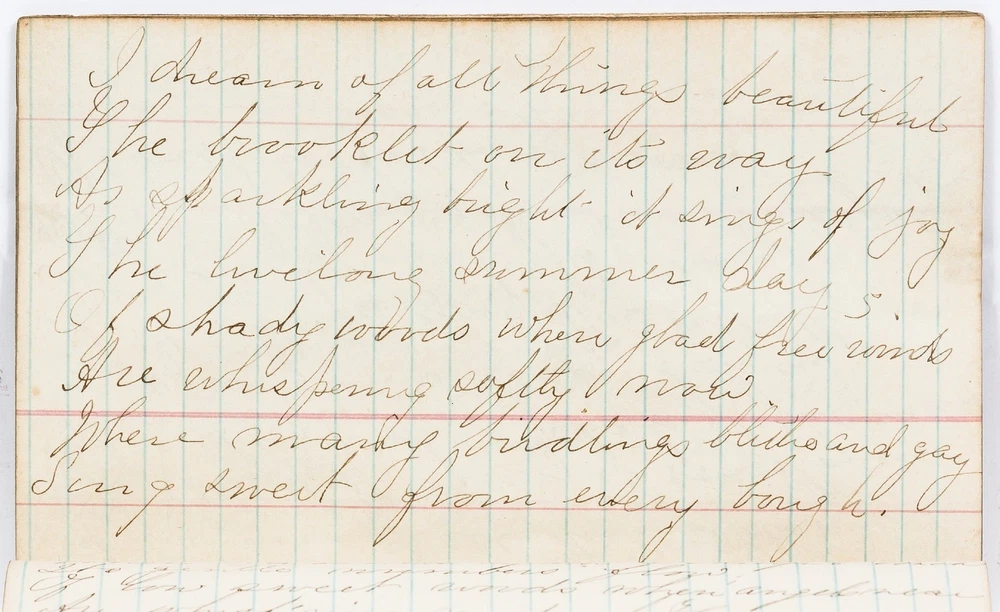 I dream of all things beautiful
The brooklet on its way
As sparkling bright it sings of joy
The livelong summer day
Of shady woods where glad free winds
Are whispering softly now
Where many birdlings blithe and gay
Sing sweet from every bough.
sweet words when angel